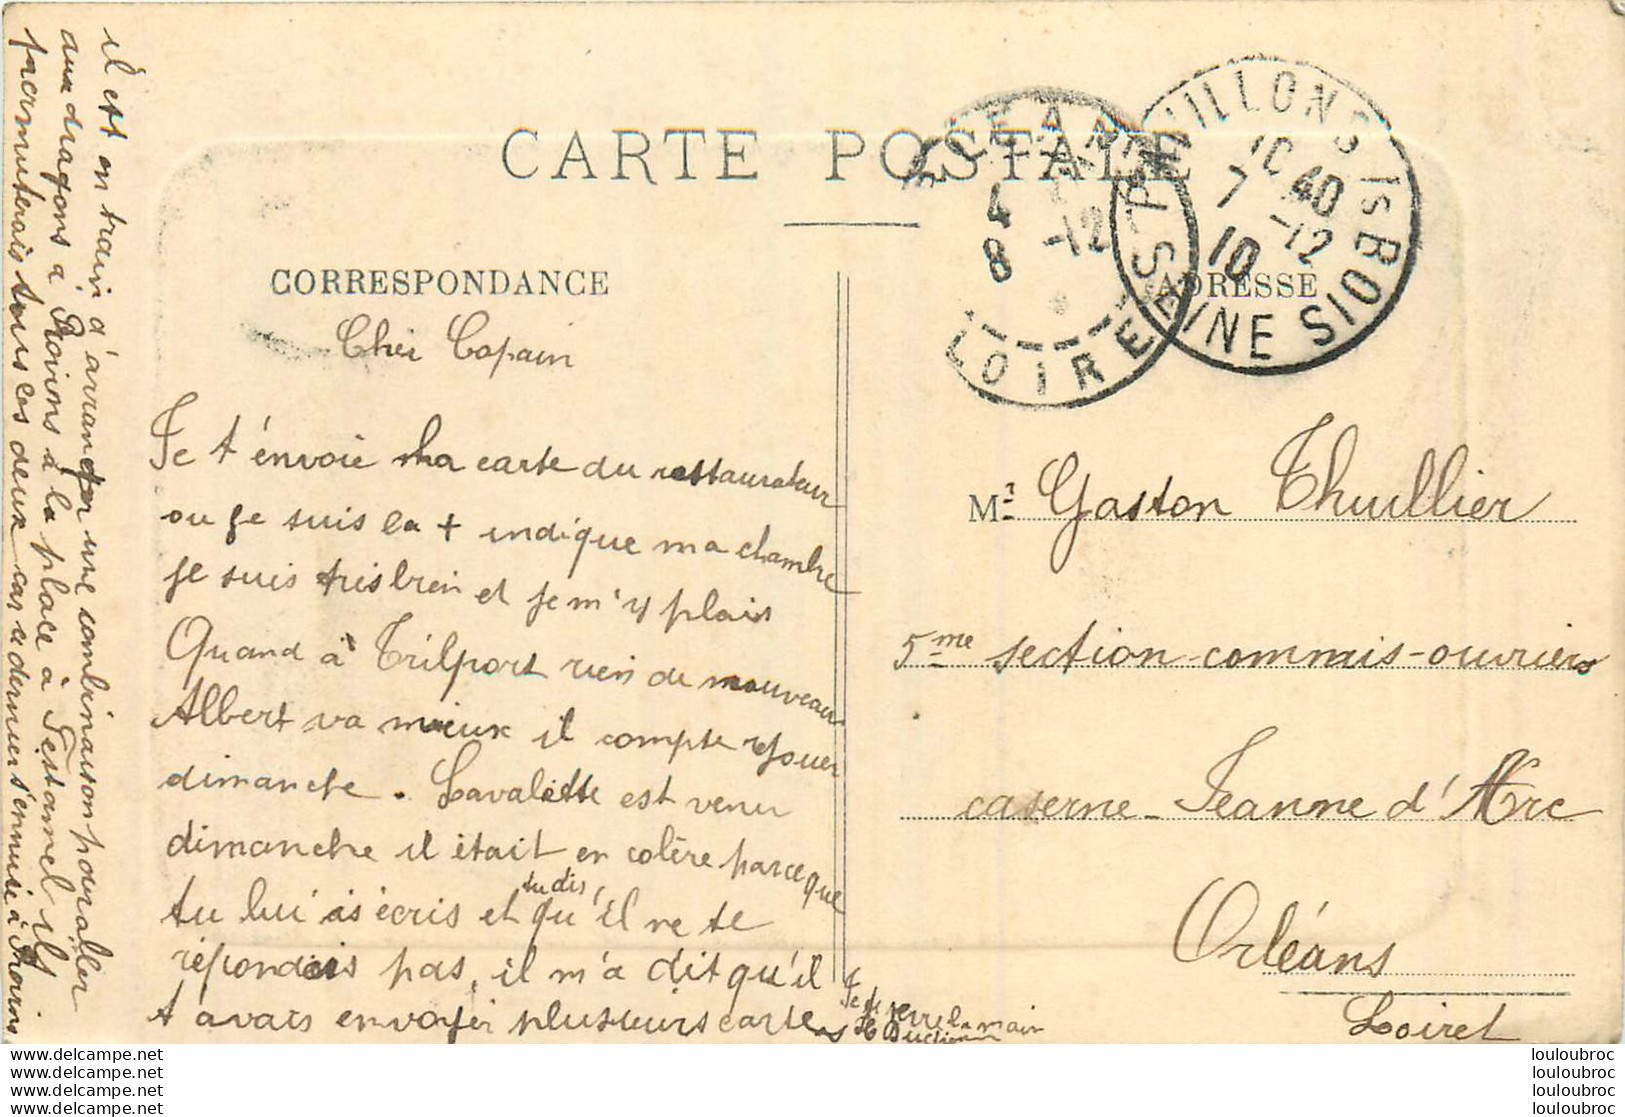 CARTE POSTALE
CORRESPONDANCE
ADRESSE
LES PAVILLONS S/S BOIS
SEINE
10 40
7 -12
10
ORLEANS
4
8 -12
LOIRET
Cher Copain
Je t'envoie la carte du restaurateur
ou je suis la + indique ma chambre
je suis tres bien et je m'y plais
Quand à Trilport rien de nouveau
Albert va mieux il compte jouer
dimanche. Lavalette est venu
dimanche il était en colère parceque
tu lui as écris et tu dis qu'il ne te
répondais pas, il m'a dit qu'il
t'avais envoyer plusieurs cartes
il est en train d'arranger une combinaison pour aller
aux dragons à Provins à la place à Testamel ils
permuterais tous les deux car ce dernier s'ennuie à Provins
Je te serre la main
Mr Gaston Thuillier
5me section-commis-ouvriers
caserne-Jeanne d'Arc
Orléans
Loiret
louloubroc
louloubroc
louloubroc
louloubroc
louloubroc
louloubroc
louloubroc
louloubroc